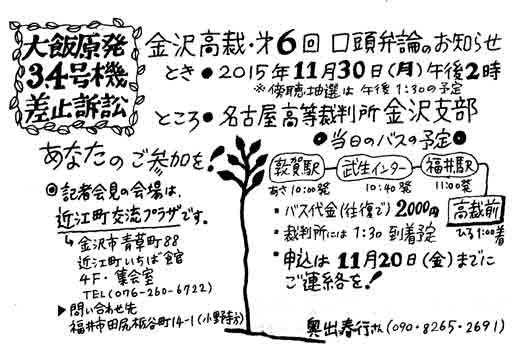 大飯原発
3,4号機
差止訴訟
金沢高裁・才6回 口頭弁論のお知らせ
とき●2015年11月30日(月)午後2時
※傍聴抽選は午後1:30の予定
ところ●名古屋高等裁判所金沢支部
あなたのご参加を!
●当日のバスの予定●
敦賀駅 武生インター 福井駅
あさ10:00発 10:40発 11:00発
高裁前
ひる1:00着
◎記者会見の会場は、
近江町交流プラザです。
↳金沢市青草町88
近江町いちば館
4F・集会室
TEL(076-260-6722)
▶問い合わせ先
福井市田尻栃谷町14-1(小野寺方)
▪バス代金(往復で)2,000円
▪裁判所には1:30到着予定
▪申込は11月20日(金)までに
ご連絡を!
奥出春行さん(090-8265-2691)